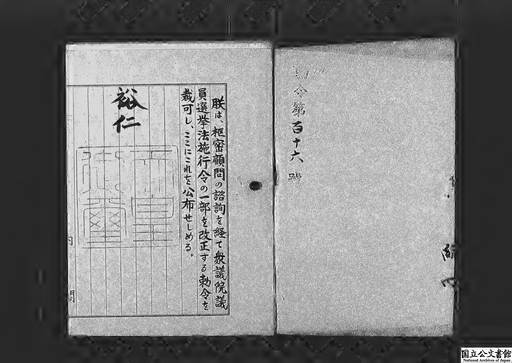 勅令第百十六號
朕は、枢密顧問の諮詢を経て衆議院議
員選挙法施行令の一部を改正する勅令を
裁可し、ここにこれを公布せしめる。
裕仁
国立公文書館
National Archives of Japan